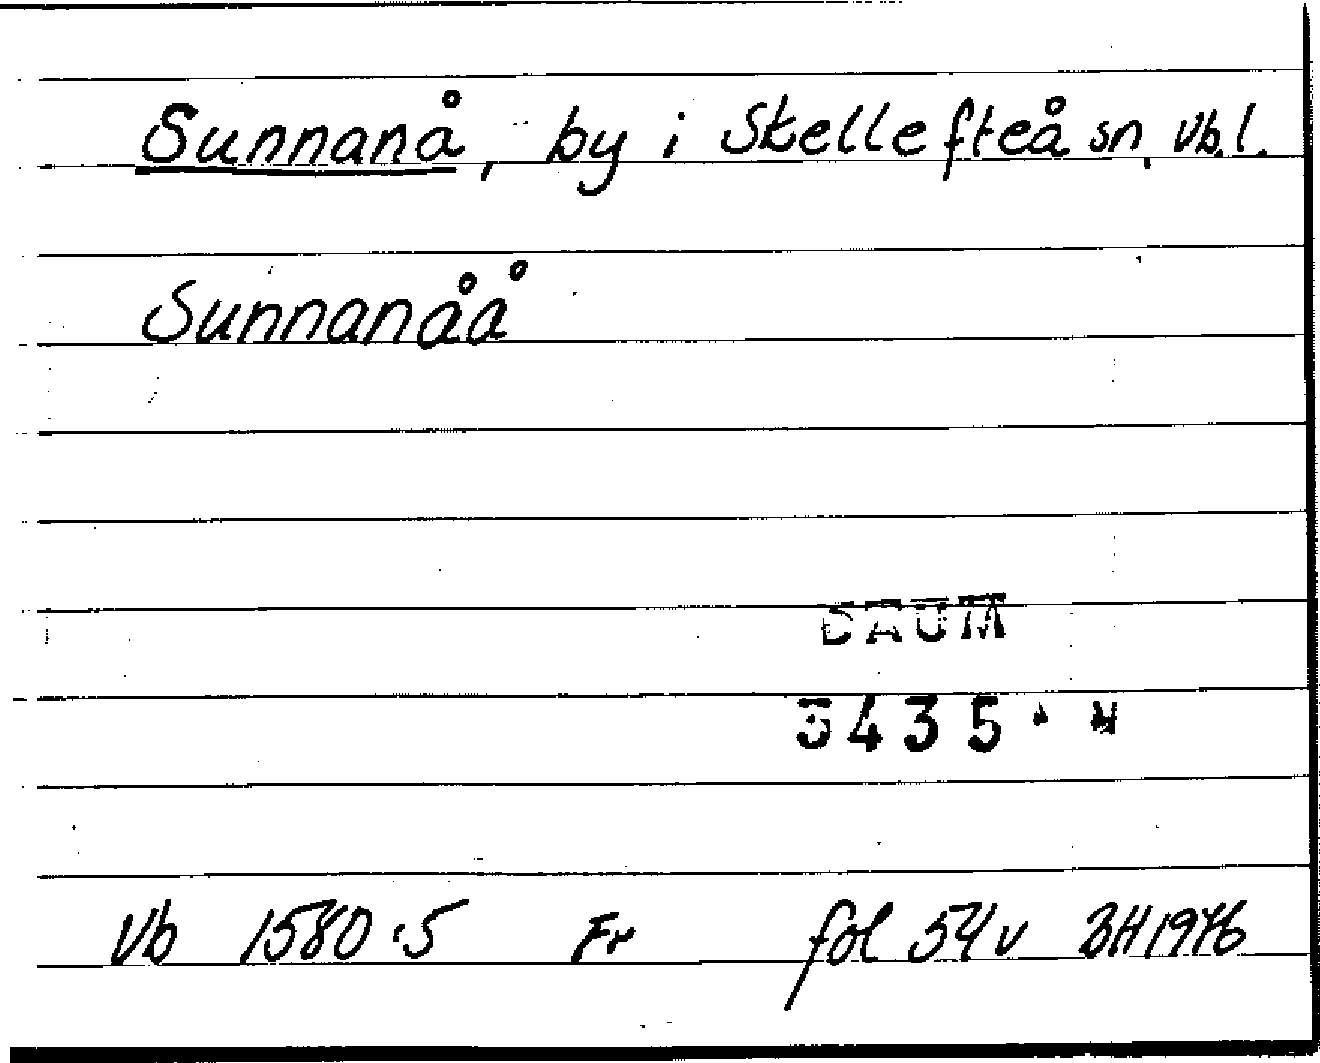 Sunnanå, by i Skellefteå sn, Vb.l.
Sunnanåå
DAUM
3435
Vb 1580:5 Fr fol 54v BH1976